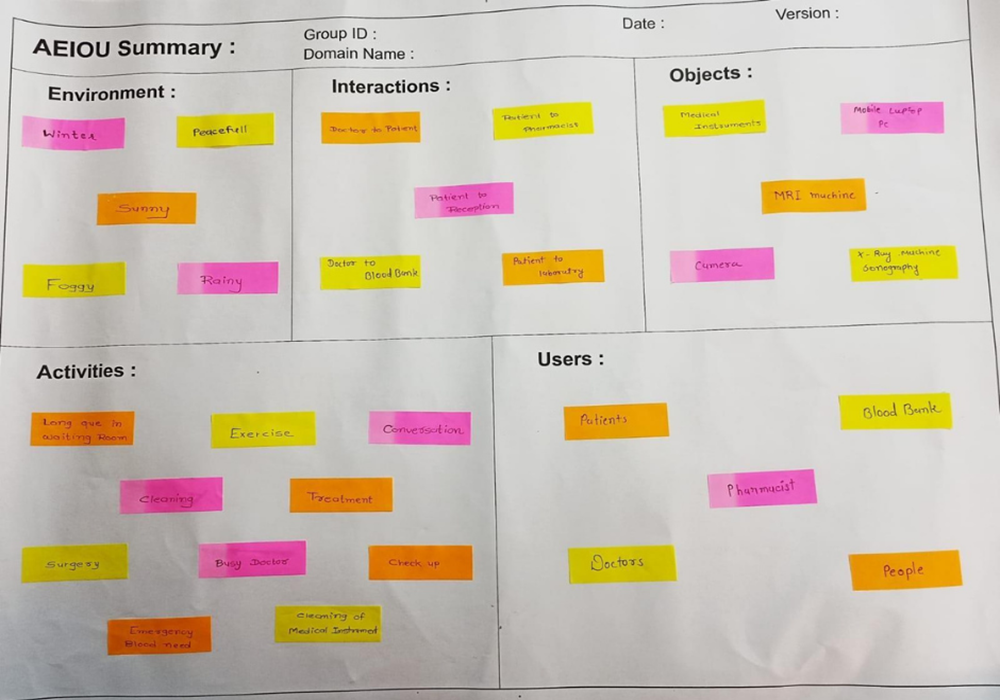 AEIOU Summary :
Group ID :
Domain Name :
Date :
Version :
Environment :
Winter
Peacefull
Sunny
Foggy
Rainy
Interactions :
Doctor to Patient
Patient to
Pharmacist
Patient to
Reception
Doctor to
Blood Bank
Patient to
laboratry
Objects :
Medical
Instruments
Mobile Luptop
Pc
MRI muchine
Cumera
X-Ray Muchine
Sonography
Activities :
Long que in
waiting Room
Exercise
Conversation
Cleaning
Treatment
Surgery
Busy Doctor
Check up
Emergency
Blood need
Cleaning of
Medical Instrumed
Users :
Patients
Blood Bunk
Pharmucist
Doctors
People